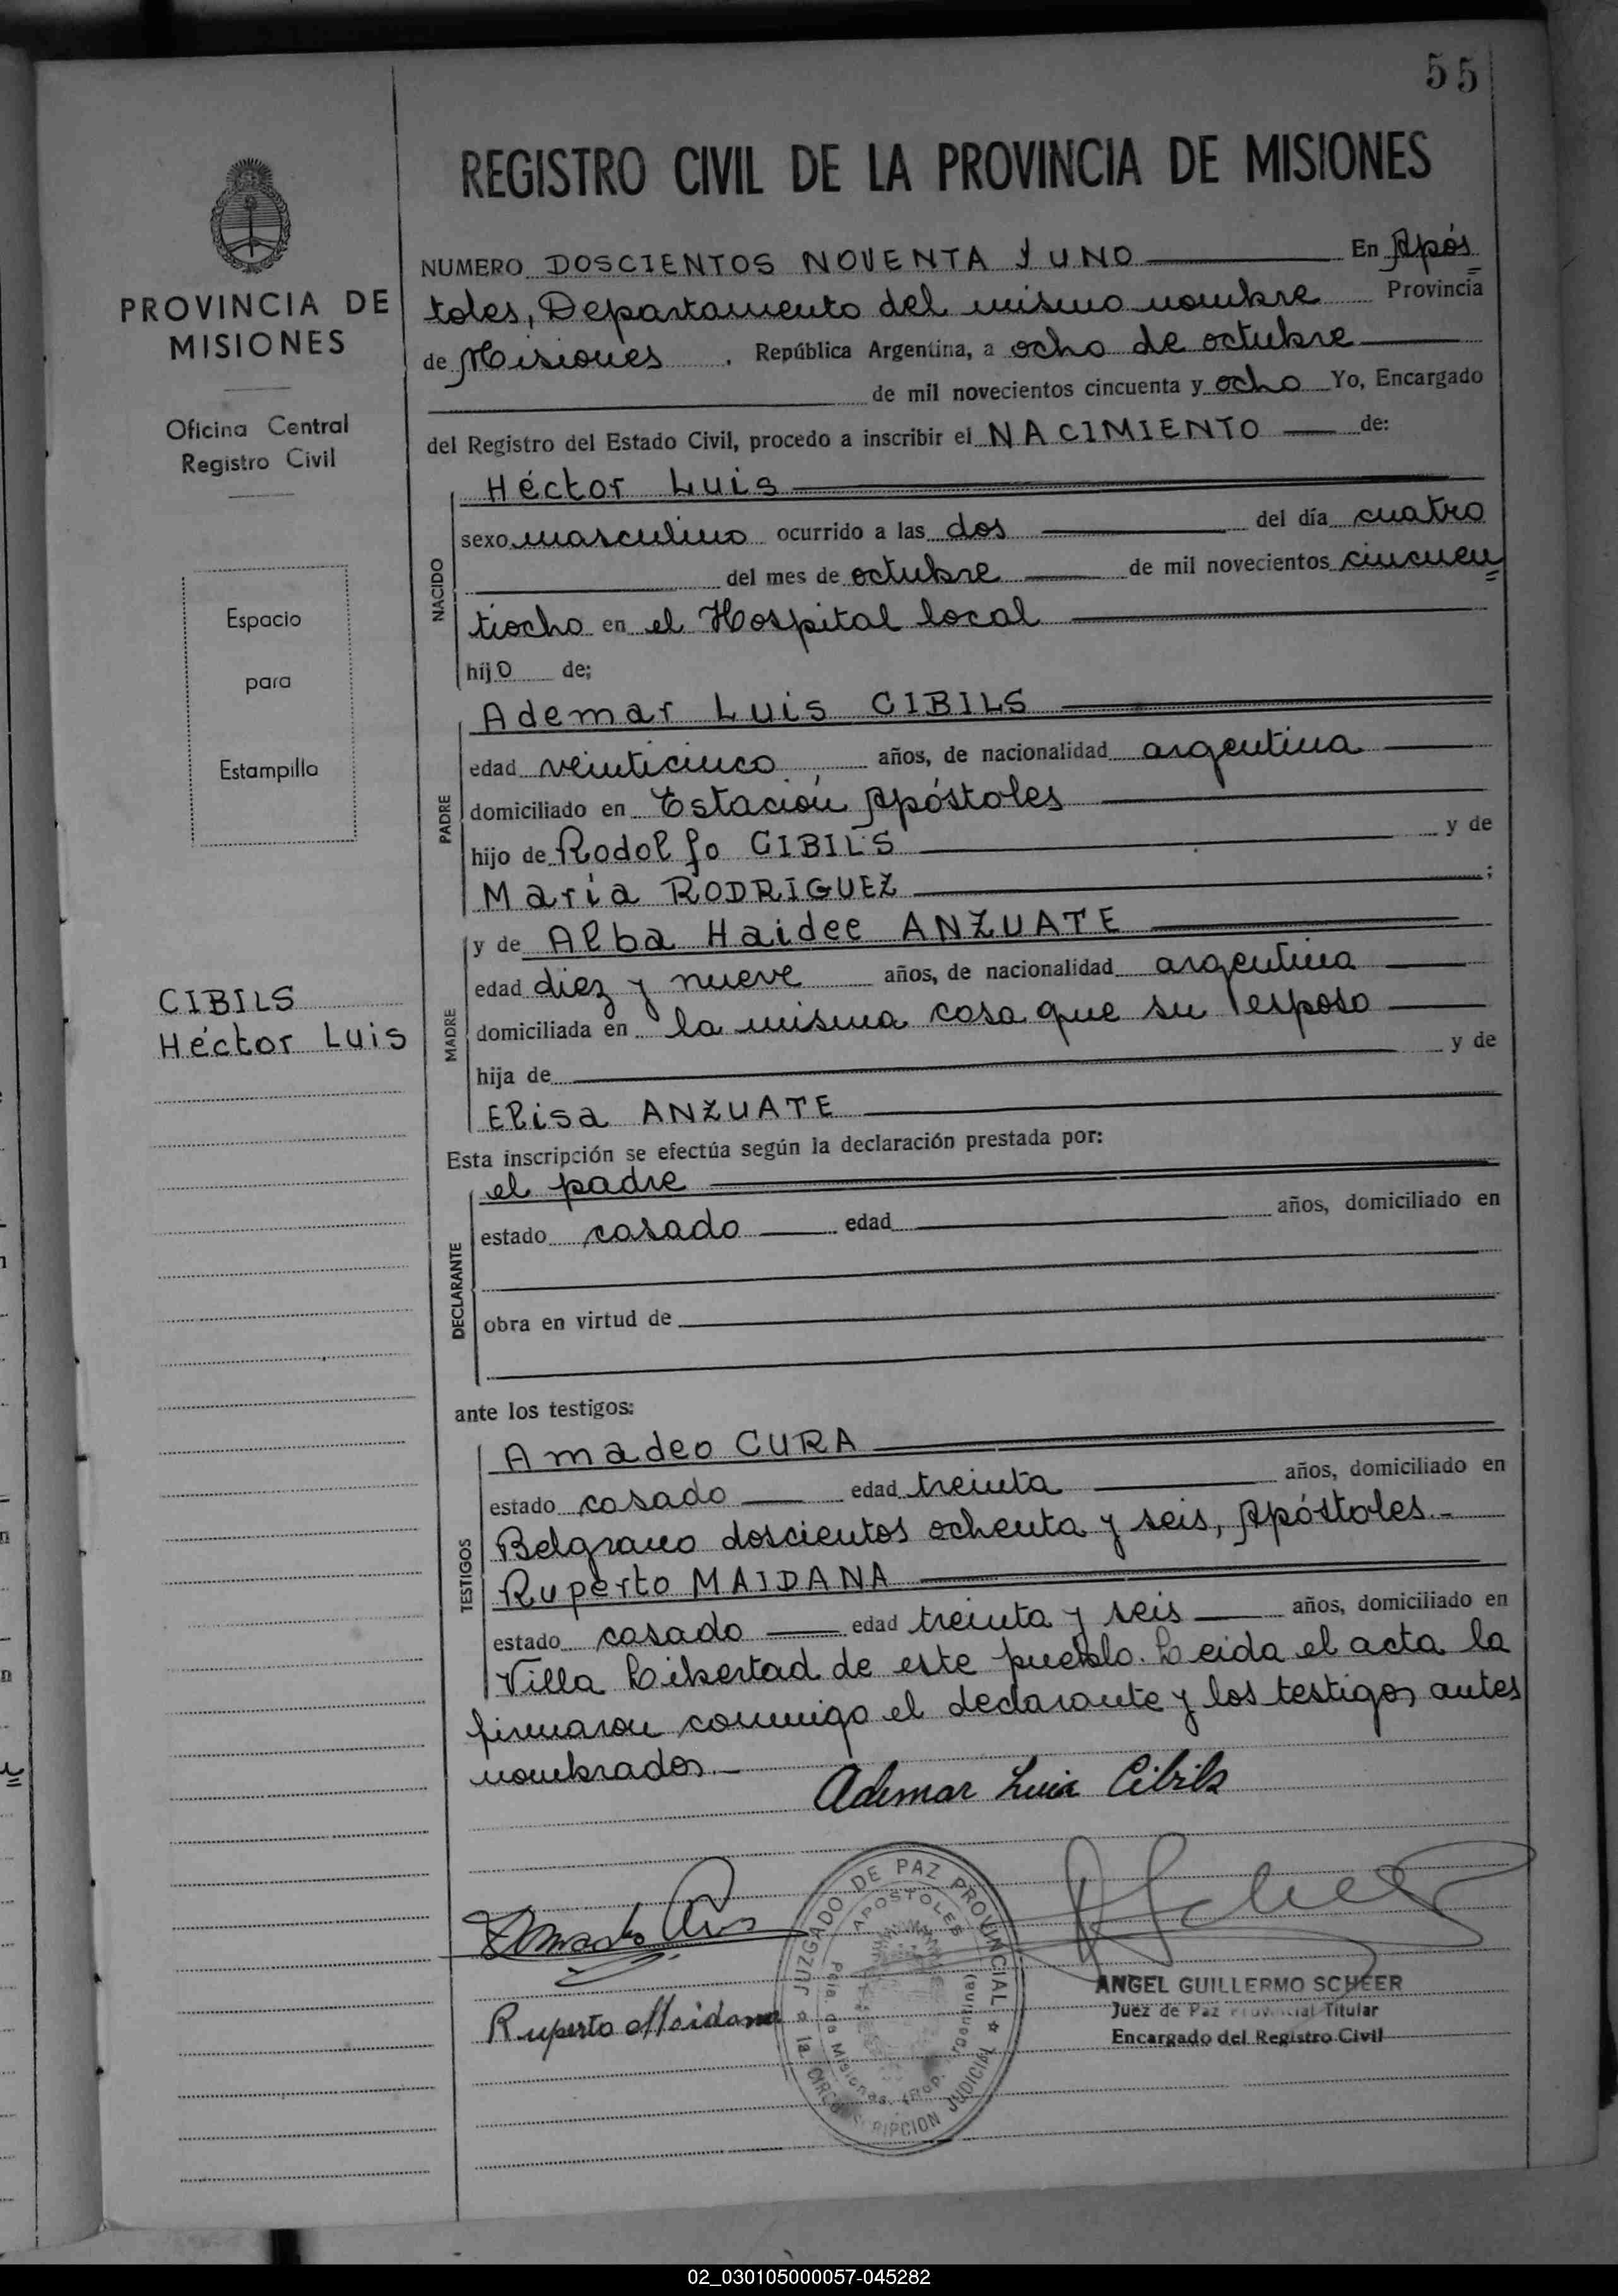 55
REGISTRO CIVIL DE LA PROVINCIA DE MISIONES
PROVINCIA DE
MISIONES
Oficina Central
Registro Civil
Espacio
para
Estampilla
CIBILS
Héctor Luis
NUMERO DOSCIENTOS NOVENTA Y UNO En Após
toles, Departamento del mismo nombre Provincia
de Misiones. República Argentina, a ocho de octubre
de mil novecientos cincuenta y ocho Yo, Encargado
del Registro del Estado Civil, procedo a inscribir el NACIMIENTO de:
NACIDO
Héctor Luis
sexo masculino ocurrido a las dos del día cuatro
del mes de octubre de mil novecientos cincuen
tiocho en el Hospital local
hijo de;
PADRE
Ademar Luis CIBILS
edad veinticinco años, de nacionalidad argentina
domiciliado en Estación Apóstoles
hijo de Rodolfo CIBILS y de
María RODRIGUEZ ;
MADRE
y de Alba Haidee ANZUATE
edad diez y nueve años, de nacionalidad argentina
domiciliada en la misma casa que su esposo
hija de y de
Elisa ANZUATE
Esta inscripción se efectúa según la declaración prestada por:
DECLARANTE
el padre
estado casado edad años, domiciliado en
obra en virtud de
ante los testigos:
TESTIGOS
Amadeo CURA
estado casado edad treinta años, domiciliado en
Belgrano doscientos ochenta y seis, Apóstoles.-
Ruperto MAIDANA
estado casado edad treinta y seis años, domiciliado en
Villa Libertad de este pueblo. Leida el acta la
firmaron conmigo el declarante y los testigos antes
nombrados.-
Ademar Luis Cibils
Ruperto Maidana
JUZGADO DE PAZ PROVINCIAL
APOSTOLES
Pcia. de Misiones (Rep. Argentina)
1a. CIRCUNSCRIPCION JUDICIAL
ANGEL GUILLERMO SCHEER
Juez de Paz Provincial Titular
Encargado del Registro Civil
02_030105000057-045282